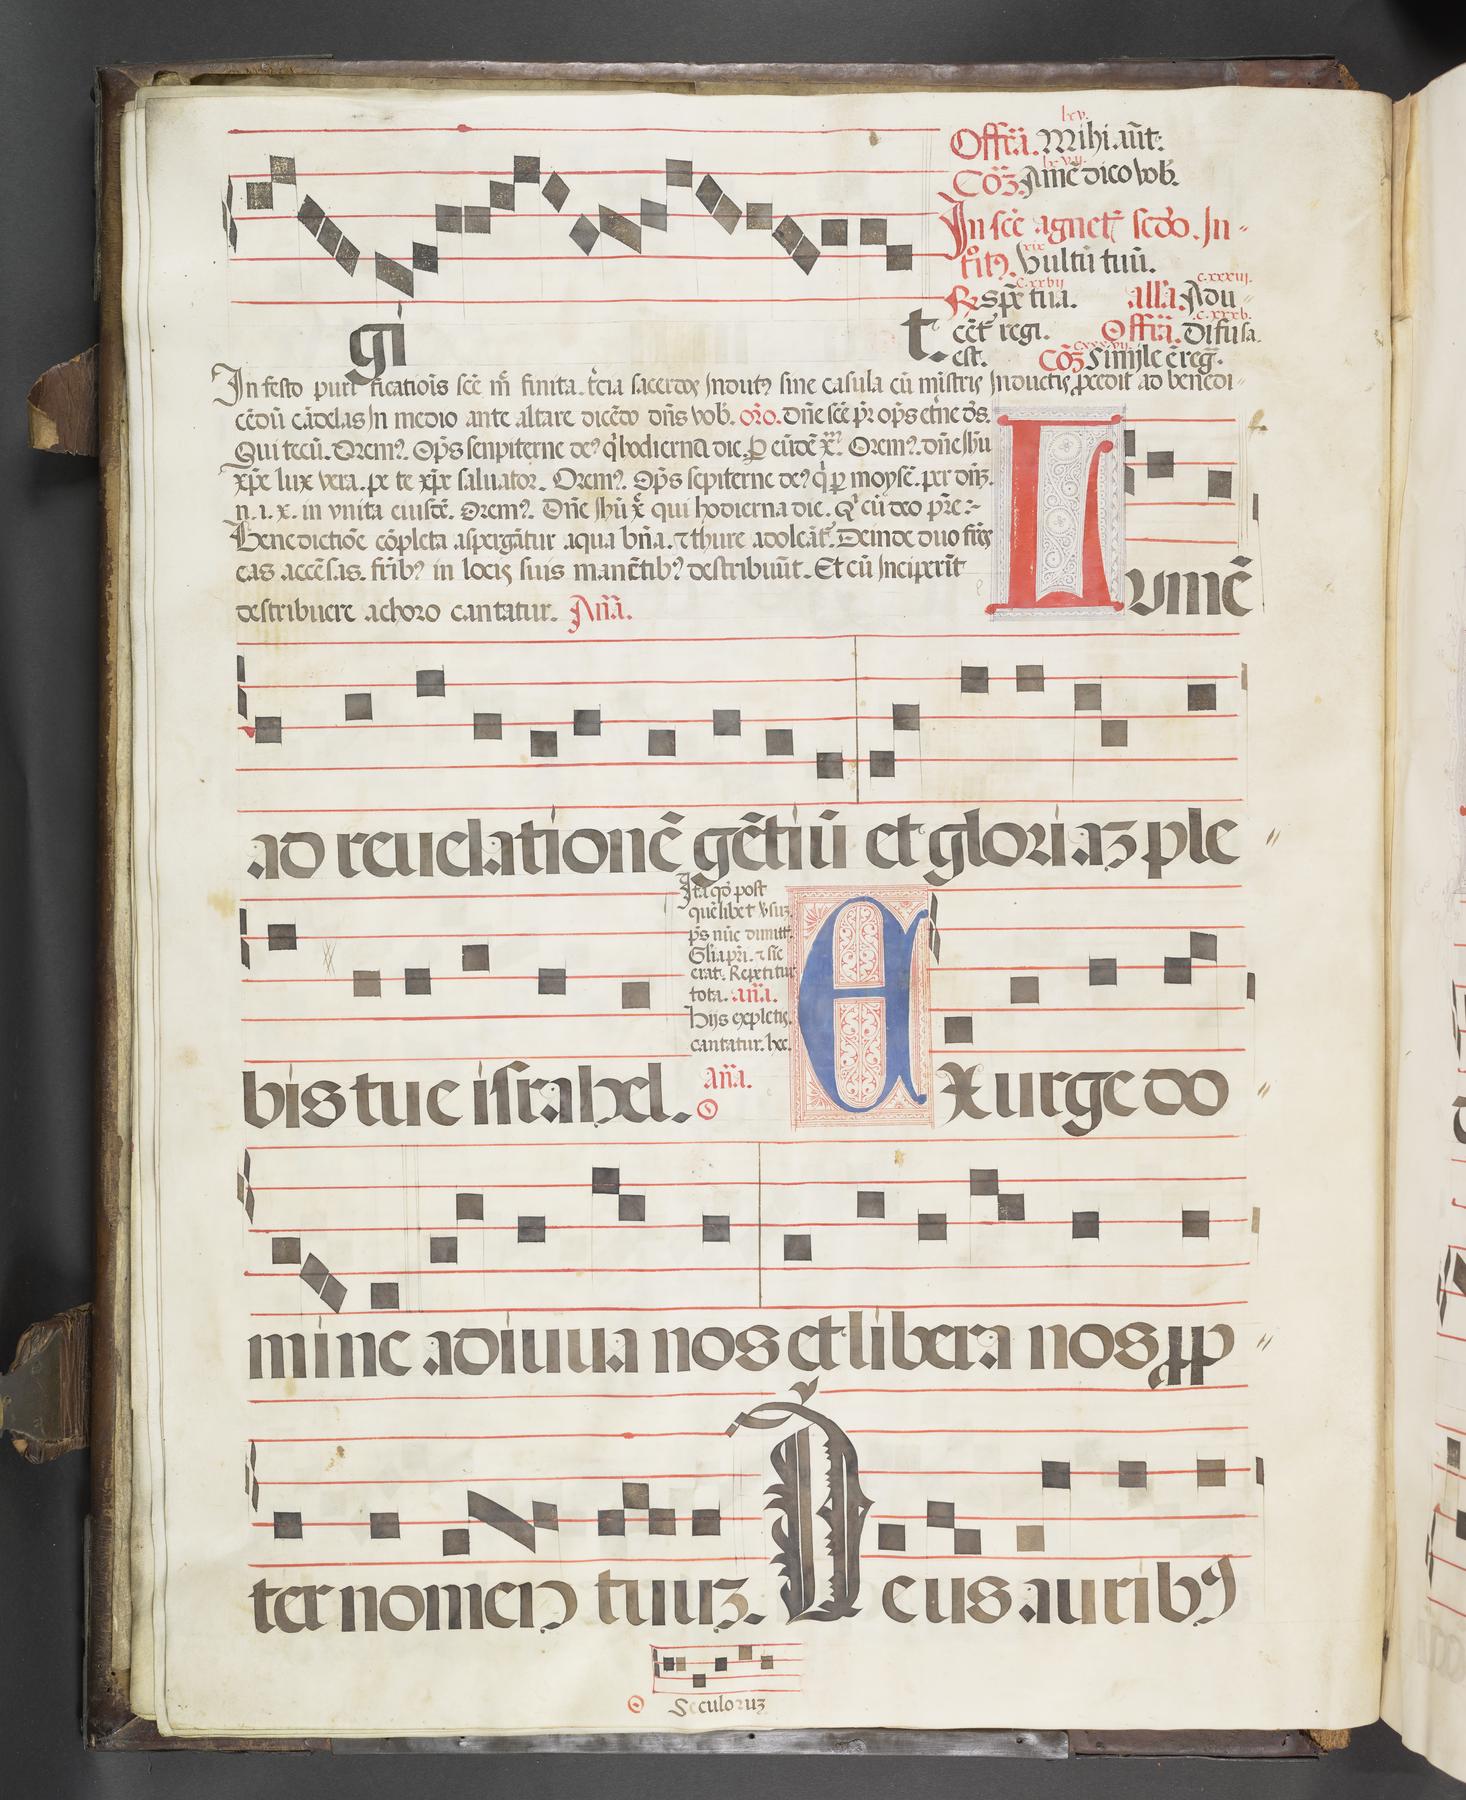 lxv.
Offīā. Mihi aūt:
lxvij.
Cōꝫ Amē dico vob.
In scē agnet̄ scdo. In-
xix
troitꝰ. Vultū tuū.
c.xxvij c.xxxiij.
℟ spē tua. alla. Adu-
gi t. cēt̄ regi. c.xxxv. Offīā. Difusa.
est. c.xxxvij. Cōꝫ Simile ē reḡ.
In festo purificatiōis scē m̄ finita. t̄cia sacerdos Indutꝰ sine casula cū mīstris Inductis p̄cedit ad benedi-
cēdū cādelas In medio ante altare dicēdo dn̄s vob. or̄o. Dn̄e scē pr̄ op̄s et̄ne d̄s.
Qui tecū. Oremꝰ. Op̄s senpiterne deꝰ q̄ hodierna die. ꝑ eūdē x̄. Oremꝰ. dn̄e Ih̄u
xp̄e lux vera. pe te xp̄e saluator. Oremꝰ. Op̄s sepiterne deꝰ q̄ ꝑ moysē. per dn̄ꝫ.
n. i. x. in vnita eiusdē. Oremꝰ. Dn̄e Ih̄u x̄ qui hodierna die. Q̄ cū deo pr̄e :-
Benedictiōe cōpleta aspergātur aqua bn̄a. ⁊ thure adoleāt̄. Deinde duo fr̄es
eas accēsas. fr̄ibꝰ in locis suis manētibꝰ destribuūt. Et cū Inciperīt
destribuere a choro cantatur. Añā.
Lumē
ad reuelationē gētiū et gloriaꝫ ple
Ita qd̄ post
quēlibet v̄suꝫ
p̄s nūc dimitt.
Gl̄ia pr̄i. ⁊ sic
erat. Repetitur
tota. añā.
Hijs expletis
cantatur. hec.
añā.
bis tue israhel. Exurge do
mine adiuua nos et libera nos ꝓp
ter nomen tuuꝫ. Deus auribꝰ
Seculoruꝫ